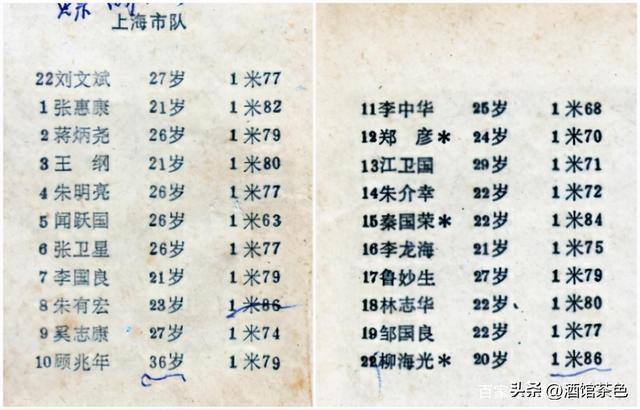 上海市队
22刘文斌 27岁 1米77
1 张惠康 21岁 1米82
2 蒋炳尧 26岁 1米79
3 王 纲 21岁 1米80
4 朱明亮 26岁 1米77
5 闻跃国 26岁 1米63
6 张卫星 26岁 1米77
7 李国良 21岁 1米79
8 朱有宏 23岁 1米86
9 奚志康 27岁 1米74
10 顾兆年 36岁 1米79
11李中华 25岁 1米68
12郑 彦* 24岁 1米70
13江卫国 29岁 1米71
14朱介幸 22岁 1米72
15秦国荣* 22岁 1米84
16李龙海 21岁 1米75
17鲁妙生 27岁 1米79
18林志华 22岁 1米80
19邹国良 22岁 1米77
22柳海光* 20岁 1米86
头条 @酒馆茶色